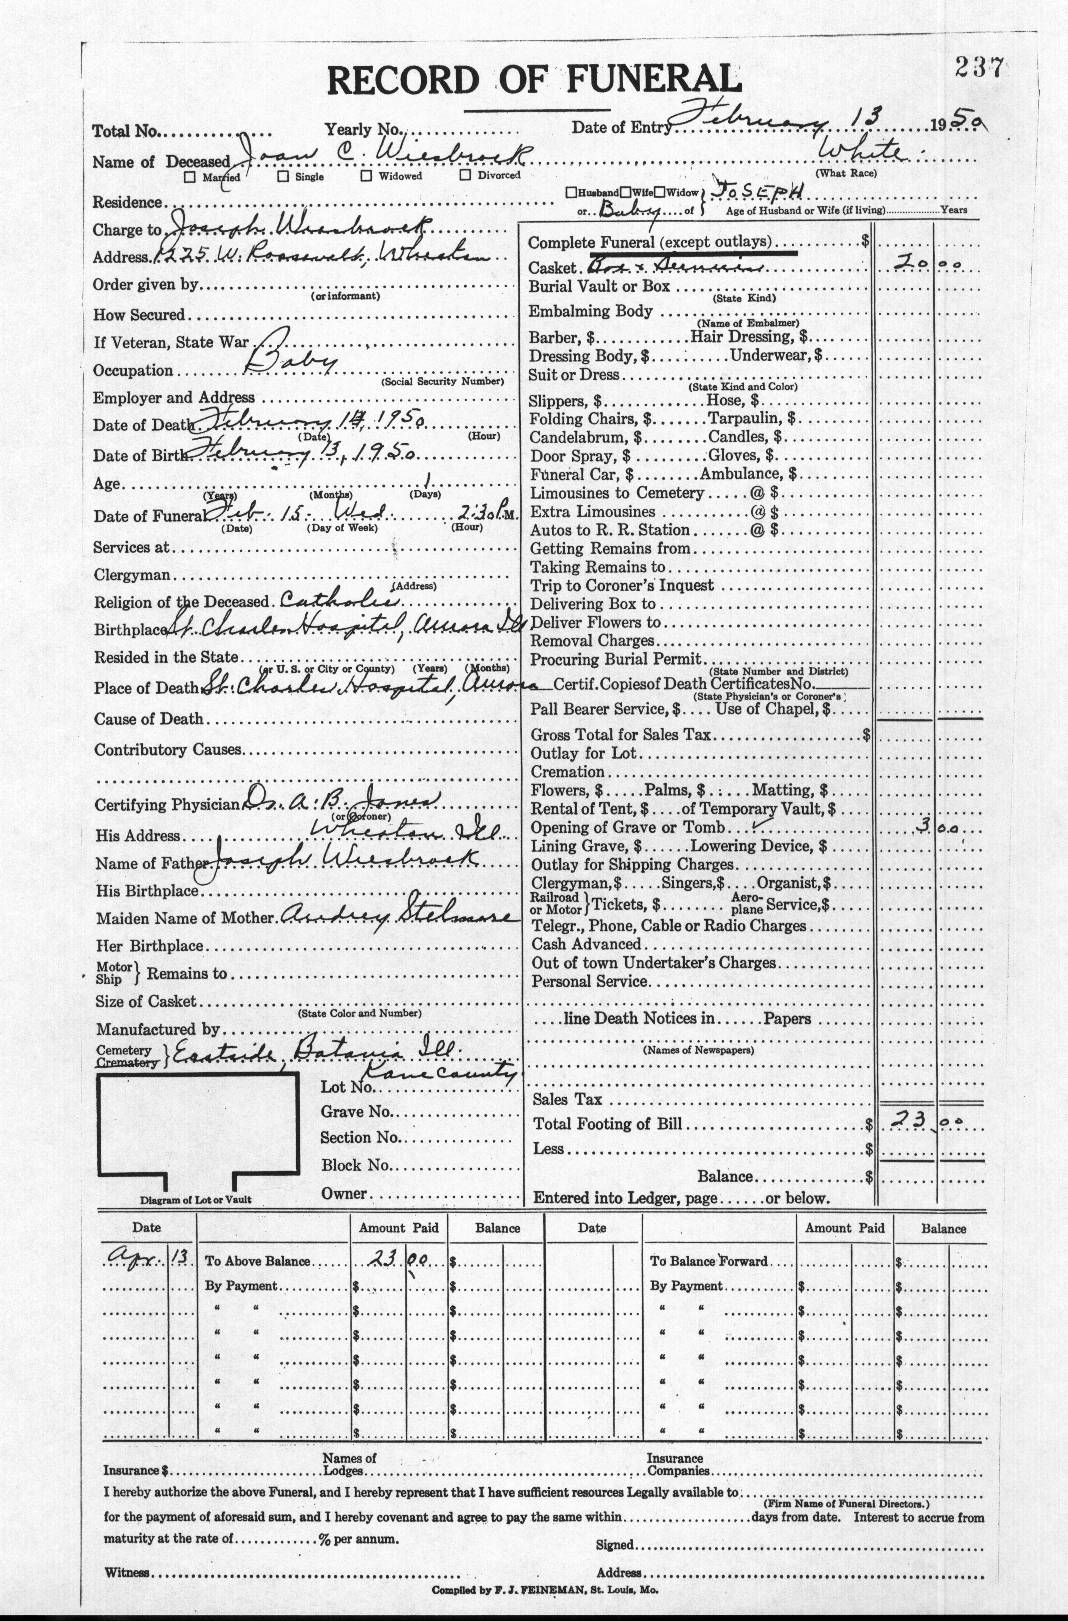 237
RECORD OF FUNERAL
Total No. Yearly No. Date of Entry February 13 1950
Name of Deceased Joan C. Wiesbrock White
Married Single Widowed Divorced (What Race)
Residence
Husband Wife Widow or Baby of } JOSEPH
Age of Husband or Wife (if living) Years
Charge to Joseph Wiesbrock
Address 1225 W. Roosevelt, Wheaton
Order given by
(or informant)
How Secured
If Veteran, State War
Occupation Baby
(Social Security Number)
Employer and Address
Date of Death February 14, 1950
(Date) (Hour)
Date of Birth February 13, 1950
Age 1
(Years) (Months) (Days)
Date of Funeral Feb. 15- Wed. 2:30 P.M.
(Date) (Day of Week) (Hour)
Services at
Clergyman
(Address)
Religion of the Deceased Catholic
Birthplace St. Charles Hospital, Aurora Ill
Resided in the State
(or U. S. or City or County) (Years) (Months)
Place of Death St. Charles Hospital, Aurora
Cause of Death
Contributory Causes
Certifying Physician Dr. A. B. Jones
(or Coroner)
His Address Wheaton Ill.
Name of Father Joseph Wiesbrock
His Birthplace
Maiden Name of Mother Audrey
Her Birthplace
Motor Ship } Remains to
Size of Casket
(State Color and Number)
Manufactured by
Cemetery Crematory } Eastside, Batavia Ill.
Kane County
Lot No.
Grave No.
Section No.
Block No.
Owner
Diagram of Lot or Vault
Complete Funeral (except outlays) $
Casket Box & 20 00
Burial Vault or Box
(State Kind)
Embalming Body
(Name of Embalmer)
Barber, $ Hair Dressing, $
Dressing Body, $ Underwear, $
Suit or Dress
(State Kind and Color)
Slippers, $ Hose, $
Folding Chairs, $ Tarpaulin, $
Candelabrum, $ Candles, $
Door Spray, $ Gloves, $
Funeral Car, $ Ambulance, $
Limousines to Cemetery @ $
Extra Limousines @ $
Autos to R. R. Station @ $
Getting Remains from
Taking Remains to
Trip to Coroner's Inquest
Delivering Box to
Deliver Flowers to
Removal Charges
Procuring Burial Permit
(State Number and District)
Certif. Copies of Death Certificates No.
(State Physician's or Coroner's)
Pall Bearer Service, $ Use of Chapel, $
Gross Total for Sales Tax $
Outlay for Lot
Cremation
Flowers, $ Palms, $ Matting, $
Rental of Tent, $ of Temporary Vault, $
Opening of Grave or Tomb ✓ 3 00
Lining Grave, $ Lowering Device, $
Outlay for Shipping Charges
Clergyman, $ Singers, $ Organist, $
Railroad or Motor } Tickets, $ Aero-plane Service, $
Telegr., Phone, Cable or Radio Charges
Cash Advanced
Out of town Undertaker's Charges
Personal Service
line Death Notices in Papers
(Names of Newspapers)
Sales Tax
Total Footing of Bill $ 23 00
Less $
Balance $
Entered into Ledger, page or below.
Date Amount Paid Balance Date Amount Paid Balance
Apr. 13 To Above Balance 23 00 $ To Balance Forward $
By Payment $ $ By Payment $ $
" " $ $ " " $ $
" " $ $ " " $ $
" " $ $ " " $ $
" " $ $ " " $ $
" " $ $ " " $ $
" " $ $ " " $ $
Insurance $ Names of Lodges Insurance Companies
I hereby authorize the above Funeral, and I hereby represent that I have sufficient resources Legally available to
(Firm Name of Funeral Directors.)
for the payment of aforesaid sum, and I hereby covenant and agree to pay the same within days from date. Interest to accrue from
maturity at the rate of % per annum.
Signed
Witness Address
Compiled by F. J. FEINEMAN, St. Louis, Mo.